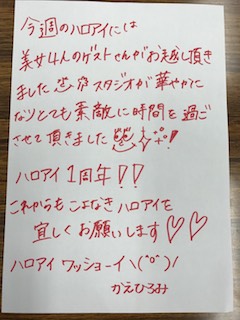 今週のハロアイには
美女4人のゲストさんがお越し頂き
ました スタジオが華やかに
なりとても素敵に時間を過ご
させて頂きました
ハロアイ1周年!!
これからもこよなきハロアイを
宜しくお願いします♡♡
ハロアイ ワッショーイ\(^o^)/
かえひろみ